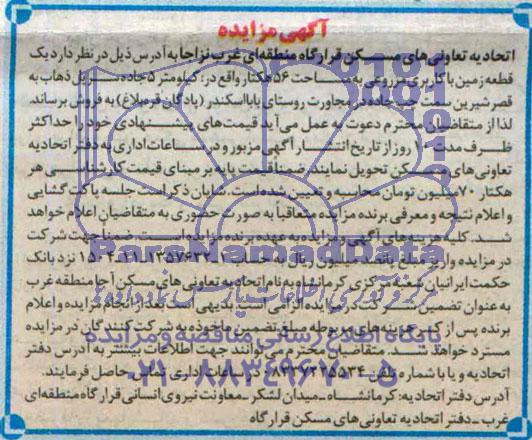 آگهی مزایده
اتحادیه تعاونی های مسکن قرارگاه منطقه ای غرب نزاجا به آدرس ذیل در نظر دارد یک
قطعه زمین با کاربری مزروعی به مساحت ۵۶ هکتار واقع در: کیلومتر ۵ جاده سرپل ذهاب به
قصر شیرین سمت چپ جاده در مجاورت روستای بابا اسکندر (پادگان قره بلاغ) به فروش برساند.
لذا از متقاضیان محترم دعوت به عمل می آید قیمت های پیشنهادی خود را حداکثر
ظرف مدت ۱۰ روز از تاریخ انتشار آگهی مزبور و در ساعات اداری به دفتر اتحادیه
تعاونی های مسکن تحویل نمایند. ضمنا قیمت پایه بر مبنای قیمت کارشناسی هر
هکتار ۷۰ میلیون تومان محاسبه و تعیین شده است. شایان ذکر است جلسه پاکت گشایی
و اعلام نتیجه و معرفی برنده مزایده متعاقباً به صورت حضوری به متقاضیان اعلام خواهد
شد. کلیه هزینه های آگهی و مزایده به عهده برنده مزایده است. ضمناً جهت شرکت
در مزایده واریز مبلغ پانصد میلیون ریال به حساب نزد بانک
حکمت ایرانیان شعبه مرکزی کرمانشاه به نام اتحادیه تعاونی های مسکن آجا منطقه غرب
به عنوان تضمین شرکت در مزایده الزامی است. بدیهی است بعد از انجام مزایده و اعلام
برنده پس از کسر هزینه های مربوطه مبلغ تضمین ماخوذه به شرکت کنندگان در مزایده
مسترد خواهد شد. متقاضیان محترم می توانند جهت اطلاعات بیشتر به آدرس دفتر
اتحادیه و یا با شماره تلفن در ساعات اداری تماس حاصل فرمایند.
آدرس دفتر اتحادیه: کرمانشاه - میدان لشکر - معاونت نیروی انسانی قرارگاه منطقه ای
غرب - دفتر اتحادیه تعاونی های مسکن قرارگاه
ParsNamadData
پایگاه اطلاع رسانی مناقصه و مزایده
۰۲۱-۸۸۳۴۹۶۷۰-۵